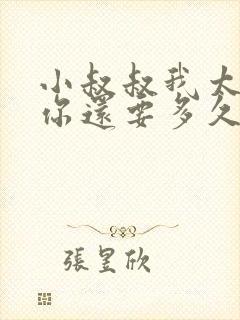 小叔叔我太
你還要多久
張昱欣